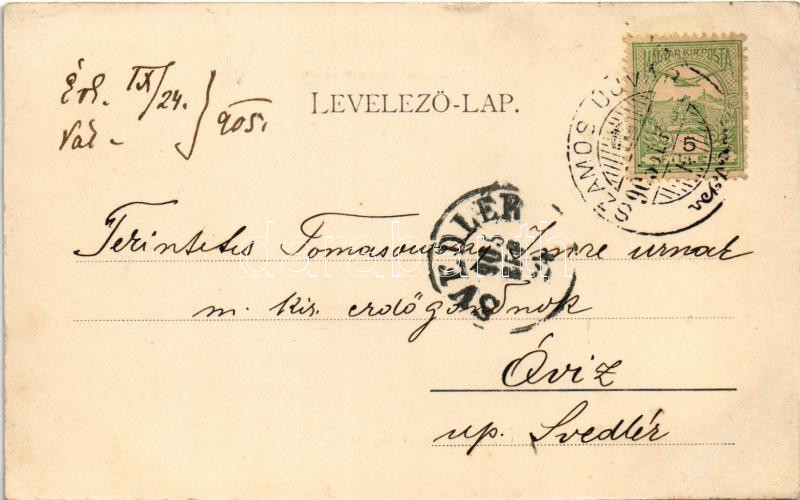 Érk. IX/24. 905.
Vál -
LEVELEZŐ-LAP.
MAGYAR KIR. POSTA
5
FILLÉR
SZAMOS UJVÁR
SVEDLÉR
905
Tekintetes Tomasovszky Imre urnak
m. kir. erdőgondnok
Óviz
up. Svedlér
darabanth